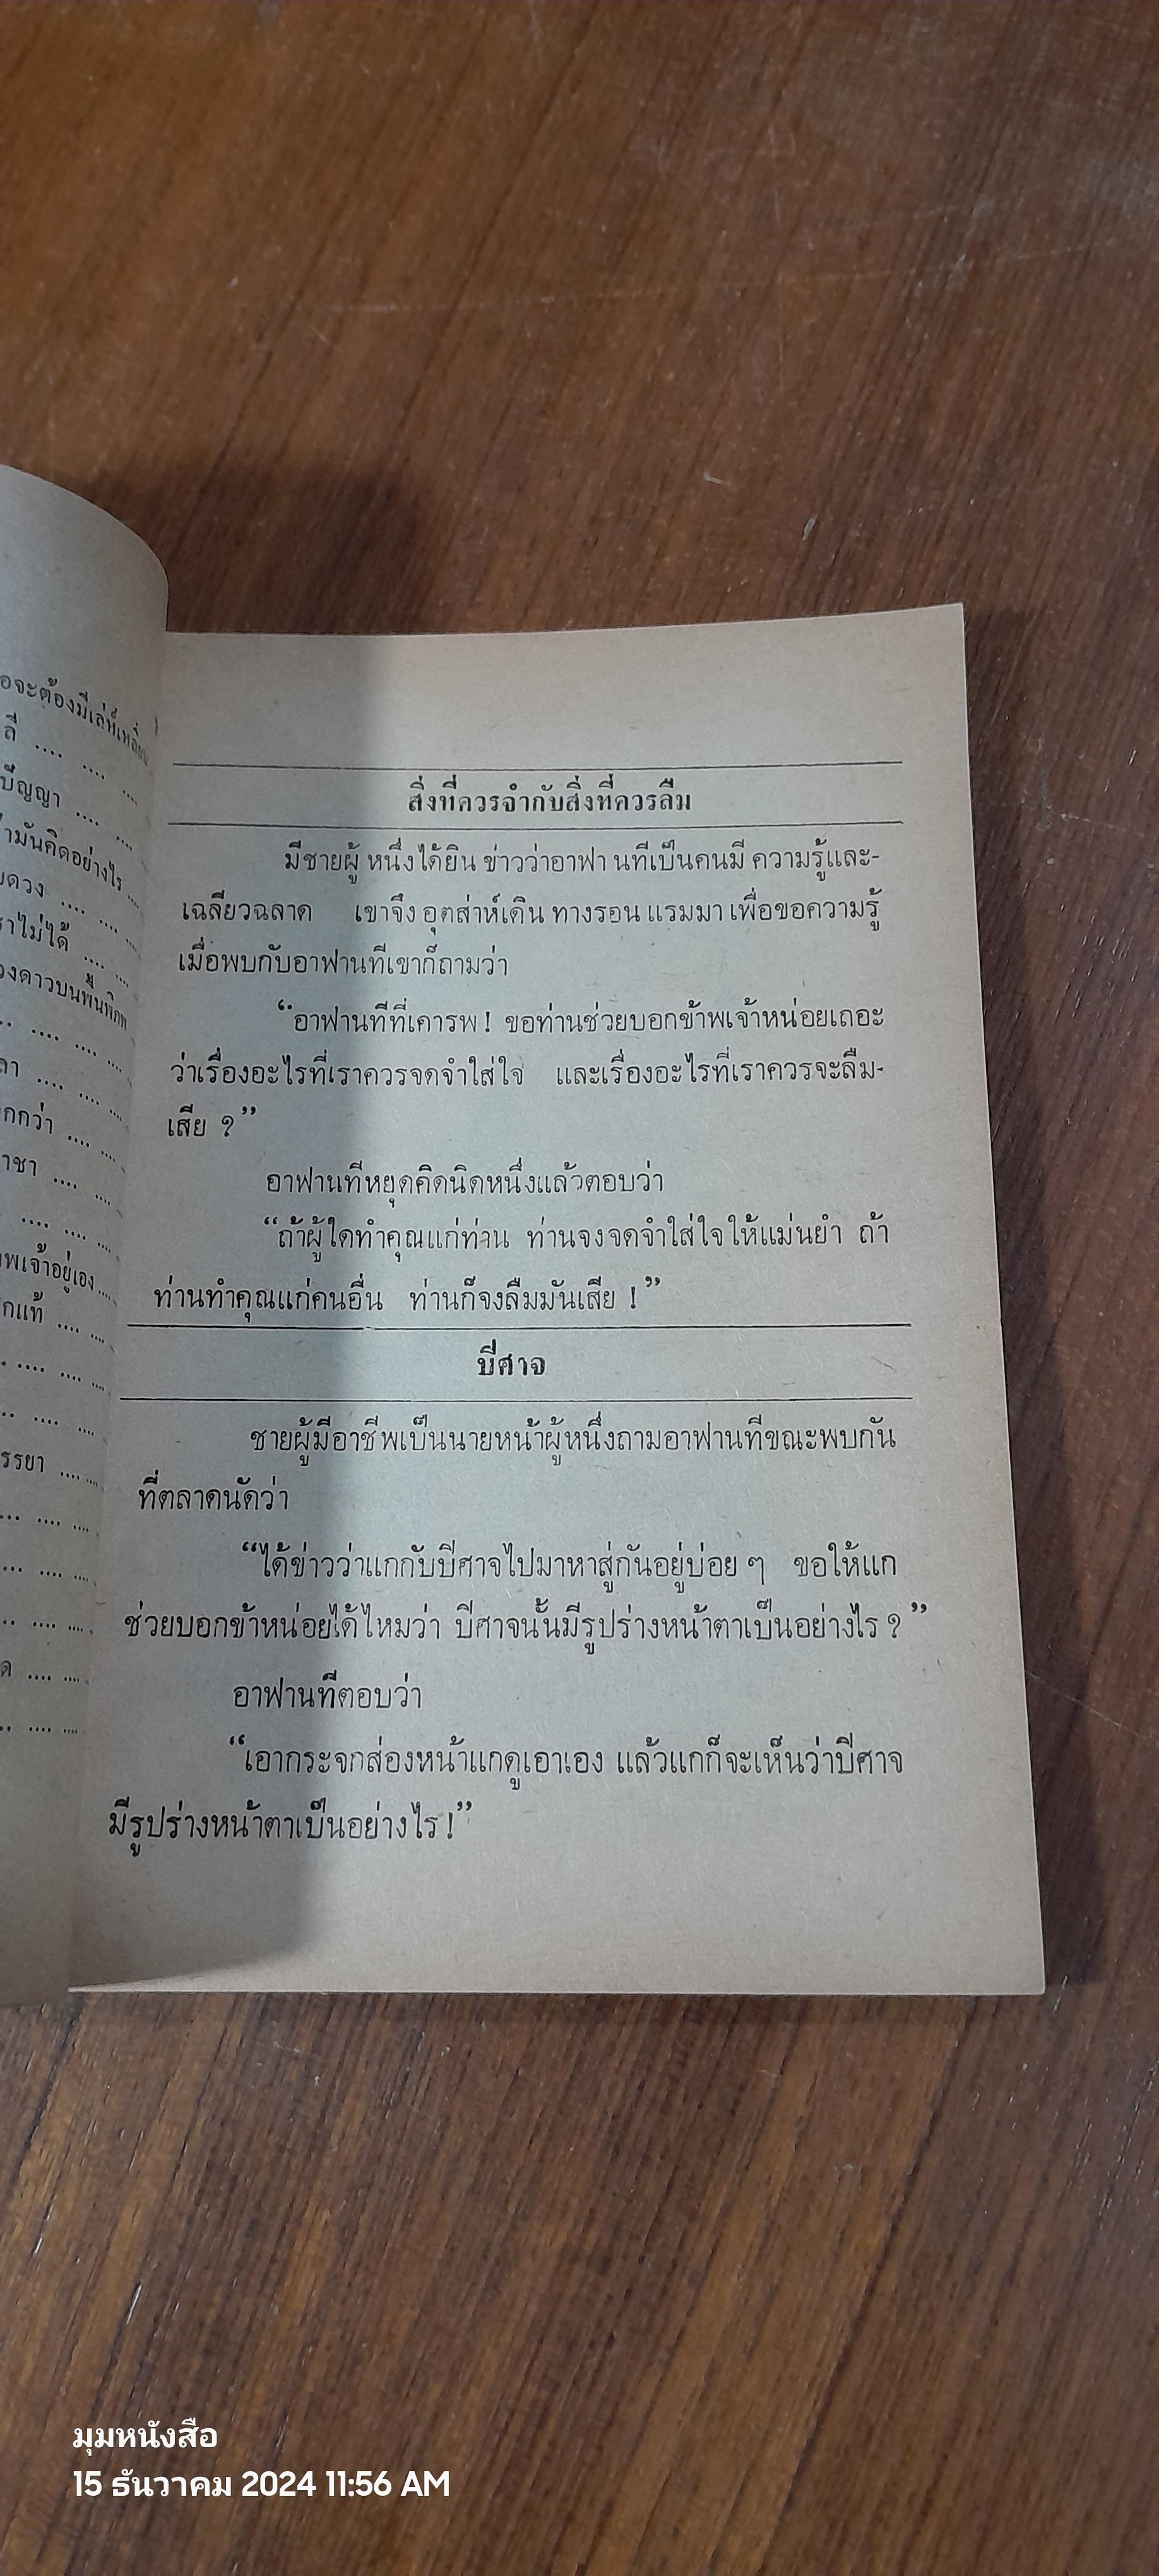 ลี .... .... ....
ปัญญา .... ....
ามันคิดอย่างไร ....
ดวง .... .... ....
ราไม่ได้ .... ....
วงดาวบนพื้นพิภพ
.... .... ....
ลา .... .... ....
กกว่า .... ....
าชา .... ....
.... .... ....
พเจ้าอยู่เอง ....
กแท้ .... ....
.... .... ....
.... ....
รรยา .... ....
.... .... ....
.... ....
.... ....
ด .... ....
.... ....
สิ่งที่ควรจำกับสิ่งที่ควรลืม
มีชายผู้ หนึ่งได้ยิน ข่าวว่าอาฟา นทีเป็นคนมี ความรู้และ-
เฉลียวฉลาด เขาจึง อุตส่าห์เดิน ทางรอน แรมมา เพื่อขอความรู้
เมื่อพบกับอาฟานทีเขาก็ถามว่า
“อาฟานทีที่เคารพ! ขอท่านช่วยบอกข้าพเจ้าหน่อยเถอะ
ว่าเรื่องอะไรที่เราควรจดจำใส่ใจ และเรื่องอะไรที่เราควรจะลืม-
เสีย ?”
อาฟานทีหยุดคิดนิดหนึ่งแล้วตอบว่า
“ถ้าผู้ใดทำคุณแก่ท่าน ท่านจงจดจำใส่ใจให้แม่นยำ ถ้า
ท่านทำคุณแก่คนอื่น ท่านก็จงลืมมันเสีย !”
ปีศาจ
ชายผู้มีอาชีพเป็นนายหน้าผู้หนึ่งถามอาฟานทีขณะพบกัน
ที่ตลาดนัดว่า
“ได้ข่าวว่าแกกับปีศาจไปมาหาสู่กันอยู่บ่อย ๆ ขอให้แก
ช่วยบอกข้าหน่อยได้ไหมว่า ปีศาจนั้นมีรูปร่างหน้าตาเป็นอย่างไร ?”
อาฟานทีตอบว่า
“เอากระจกส่องหน้าแกดูเอาเอง แล้วแกก็จะเห็นว่าปีศาจ
มีรูปร่างหน้าตาเป็นอย่างไร !”
มุมหนังสือ
15 ธันวาคม 2024 11:56 AM